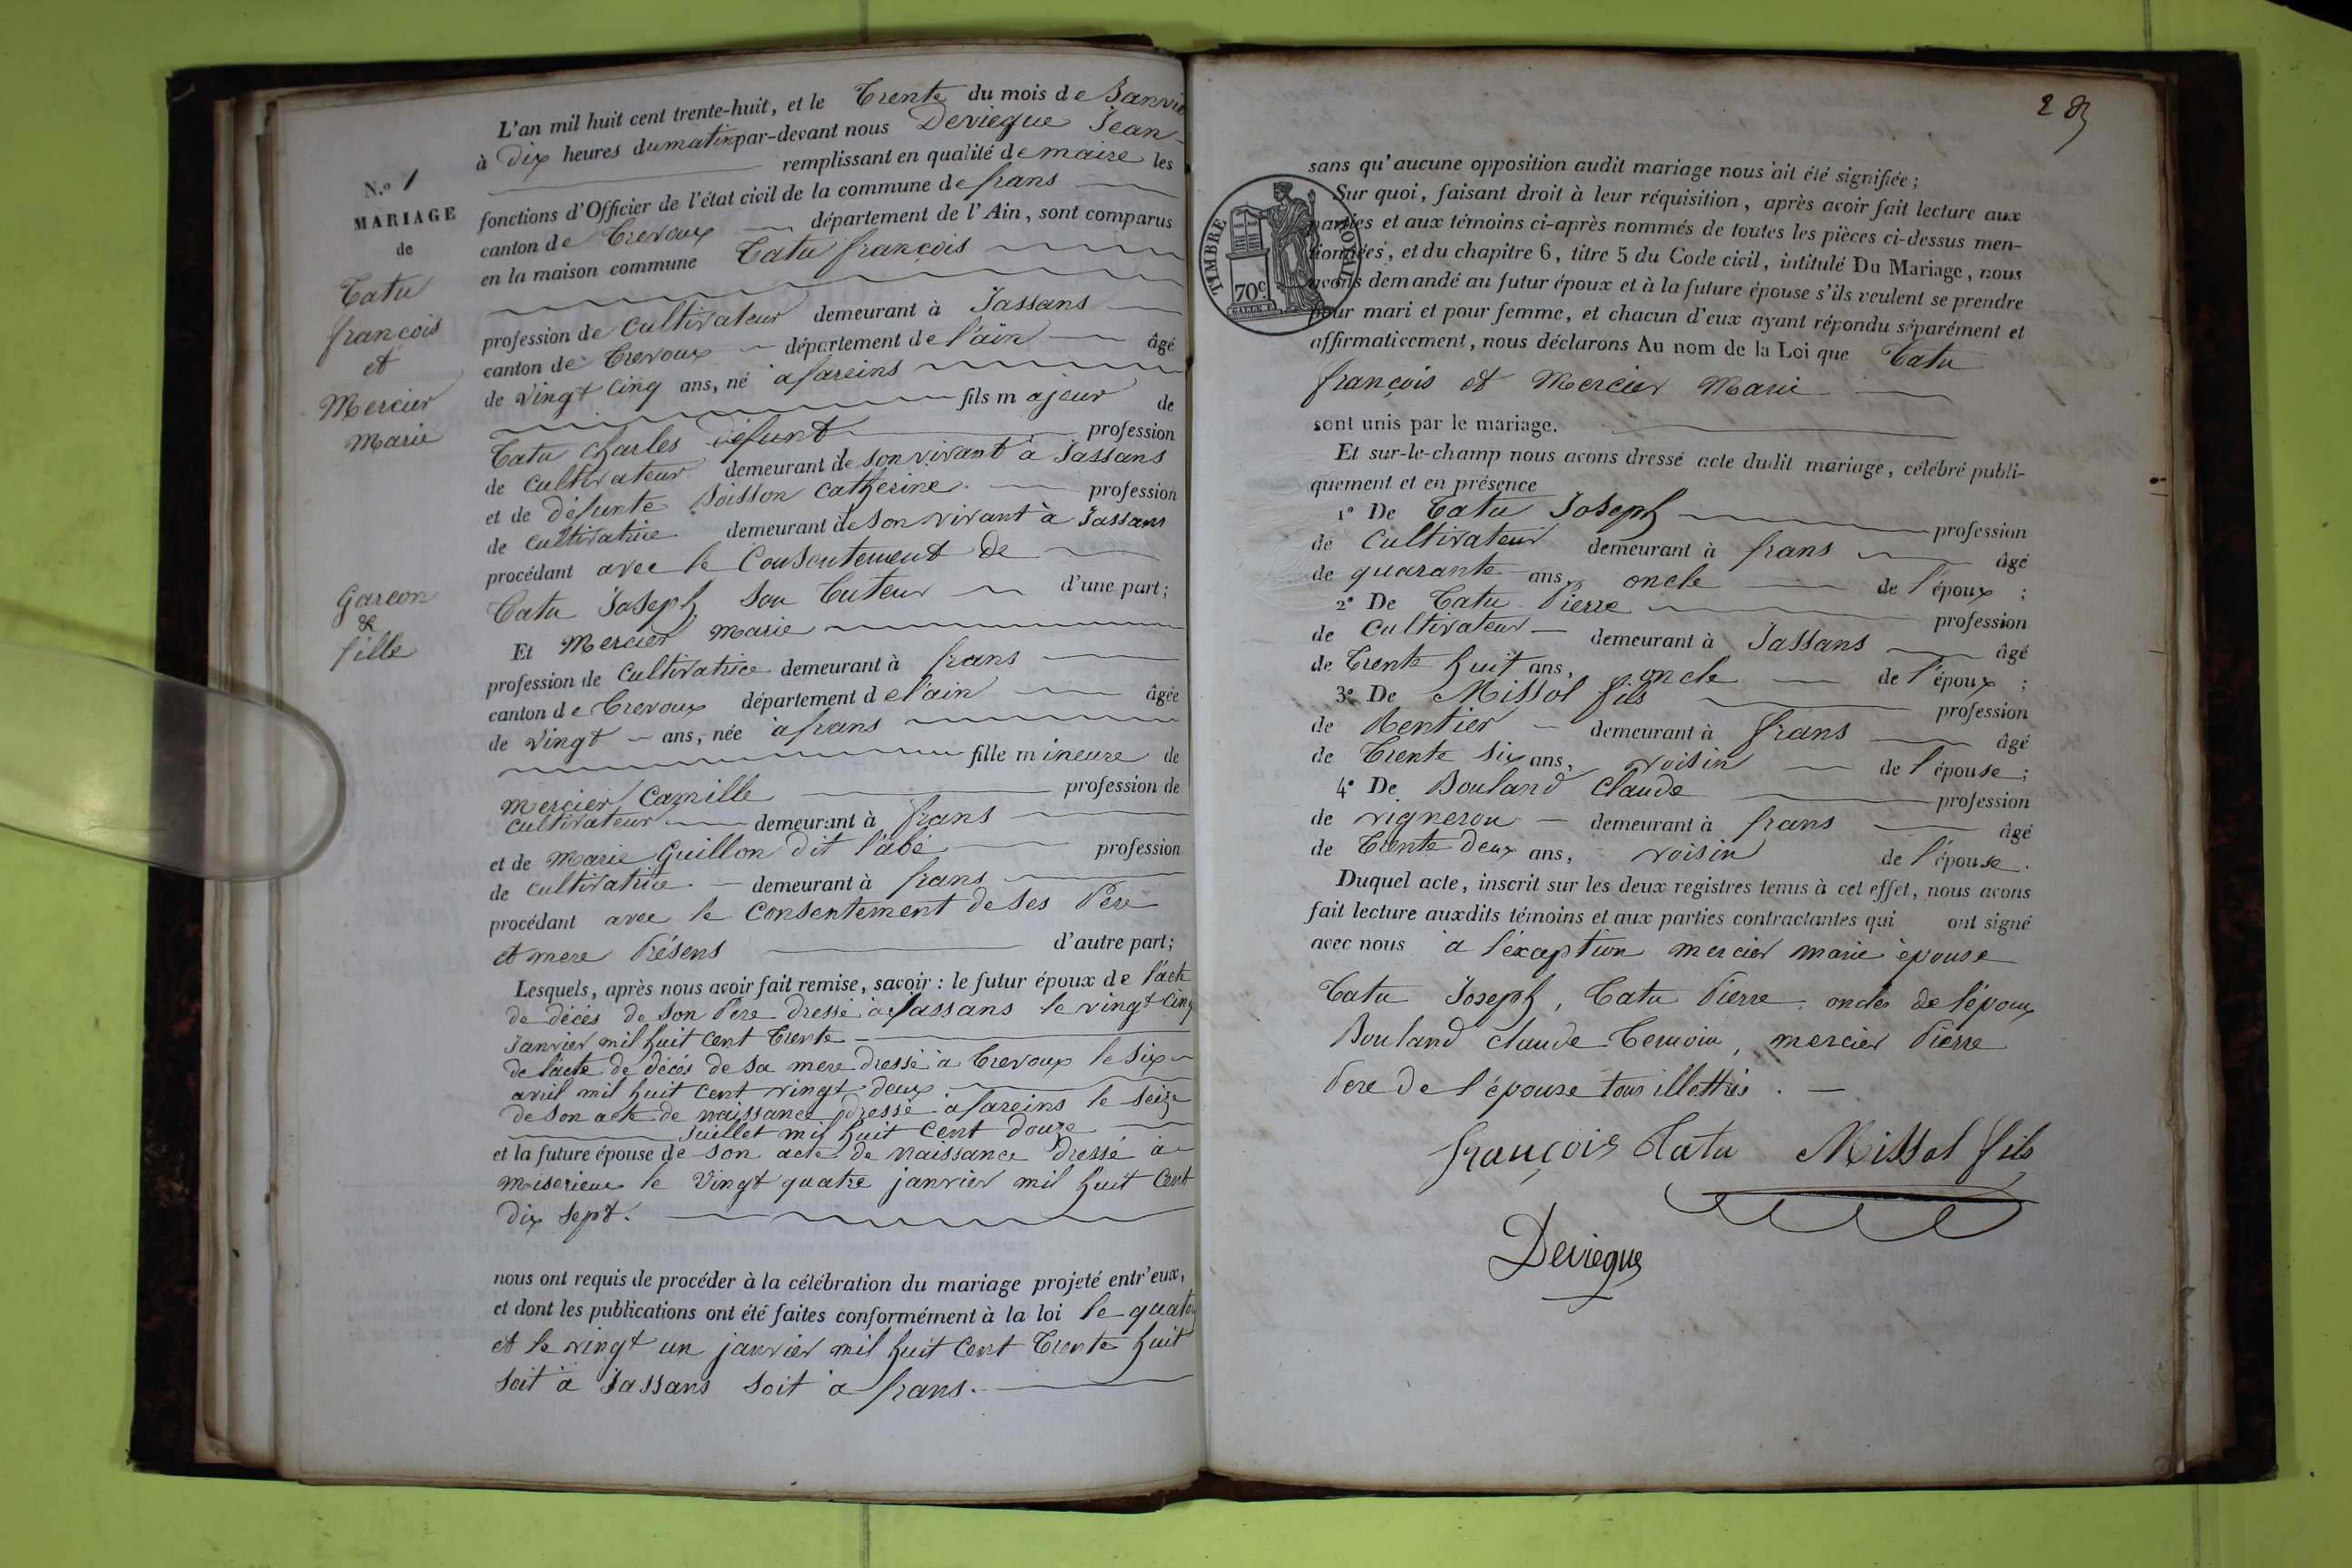 N.o 1
MARIAGE
de
Tatu
françois
et
Mercier
Marie
Garcon
&
fille
L'an mil huit cent trente-huit, et le Trente du mois de Janvie
à Dix heures du matin par-devant nous Deviegue Jean
remplissant en qualité de maire les
fonctions d'Officier de l'état civil de la commune de frans
canton de Trevoux département de l'Ain, sont comparus
en la maison commune Tatu françois
profession de cultivateur demeurant à Jassans
canton de Trevoux département de l'ain âgé
de vingt cinq ans, né à fareins
fils majeur de
Tatu charles défunt profession
de cultivateur demeurant de son vivant à Jassans
et de défunte Boisson catherine profession
de cultivatrice demeurant de son vivant à Jassans
procédant avec le Consentement De
Tatu Joseph son Tuteur d'une part;
Et Mercier Marie
profession de cultivatrice demeurant à frans
canton de Trevoux département de l'ain âgée
de vingt ans, née à frans
fille mineure de
mercier Camille profession de
cultivateur demeurant à frans
et de Marie Guillon dit l'abé profession
de cultivatrice demeurant à frans
procédant avec le consentement de ses Pere
et mere Présens d'autre part;
Lesquels, après nous avoir fait remise, savoir : le futur époux de l'acte
de décès de son Pere dressé à Jassans le vingt cinq
Janvier mil huit cent Trente
de l'acte de décès de sa mere dressé à Trevoux le six
avril mil huit cent vingt deux
de son acte de naissance dressé à fareins le seize
Juillet mil huit cent douze
et la future épouse de son acte de naissance dressé à
miserieux le vingt quatre janvier mil huit cent
dix sept.
nous ont requis de procéder à la célébration du mariage projeté entr'eux,
et dont les publications ont été faites conformément à la loi le
et le vingt un janvier mil huit cent Trente huit
soit à Jassans soit à frans.
sans qu'aucune opposition audit mariage nous ait été signifiée;
Sur quoi, faisant droit à leur réquisition, après avoir fait lecture aux
parties et aux témoins ci-après nommés de toutes les pièces ci-dessus men-
tionnées, et du chapitre 6, titre 5 du Code civil, intitulé Du Mariage, nous
avons demandé au futur époux et à la future épouse s'ils veulent se prendre
pour mari et pour femme, et chacun d'eux ayant répondu séparément et
affirmativement, nous déclarons Au nom de la Loi que Tatu
françois et Mercier Marie
sont unis par le mariage.
Et sur-le-champ nous avons dressé acte dudit mariage, célébré publi-
quement et en présence
1° De Tatu Joseph profession
de cultivateur demeurant à frans âgé
de quarante ans, oncle de l'époux ;
2° De Tatu Pierre profession
de cultivateur demeurant à Jassans âgé
de Trente huit ans, oncle de l'époux ;
3e De Missol fils profession
de Rentier demeurant à frans âgé
de Trente six ans, voisin de l'épouse ;
4° De Bouland Claude profession
de vigneron demeurant à frans âgé
de Trente deux ans, voisin de l'épouse.
Duquel acte, inscrit sur les deux registres tenus à cet effet, nous avons
fait lecture auxdits témoins et aux parties contractantes qui ont signé
avec nous à l'éxception mercier marie épouse
Tatu Joseph, Tatu Pierre oncles de l'époux
Bouland Claude Temoin, mercier Pierre
Pere de l'épouse tous illettrés.
françois tatu Missol fils
Deviegue
TIMBRE ROYAL
70c